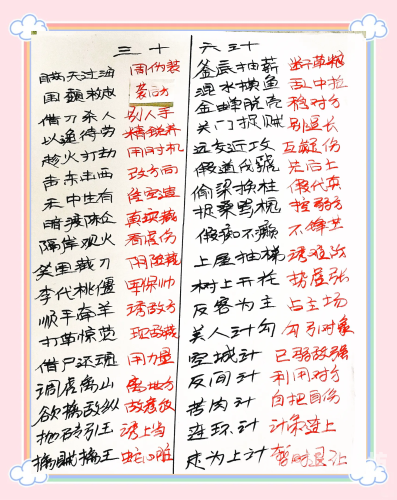 三十六计
瞒天过海 用伪装
围魏救赵 袭后方
借刀杀人 别人手
以逸待劳 精锐养
趁火打劫 用时机
声东击西 改方向
无中生有
暗渡陈仓 真项藏
隔岸观火 看虚伤
笑里藏刀 阴险藏
李代桃僵 车保帅
顺手牵羊 诱敌方
打草惊蛇
借尸还魂 用力量
调虎离山 离地方
欲擒故纵
抛砖引玉 诱上当
擒贼擒王
釜底抽薪 断草粮
混水摸鱼 乱中抢
金蝉脱壳 稳对方
关门捉贼
远交近攻
假道伐虢 先后上
偷梁换柱 假代真
指桑骂槐
假痴不癫
上屋抽梯
树上开花
反客为主 占主场
美人计 勾引对象
空城计 已弱敌强
反间计 利用对方
苦肉计 自把自伤
连环计 计策连上
走为上计 暂时退让